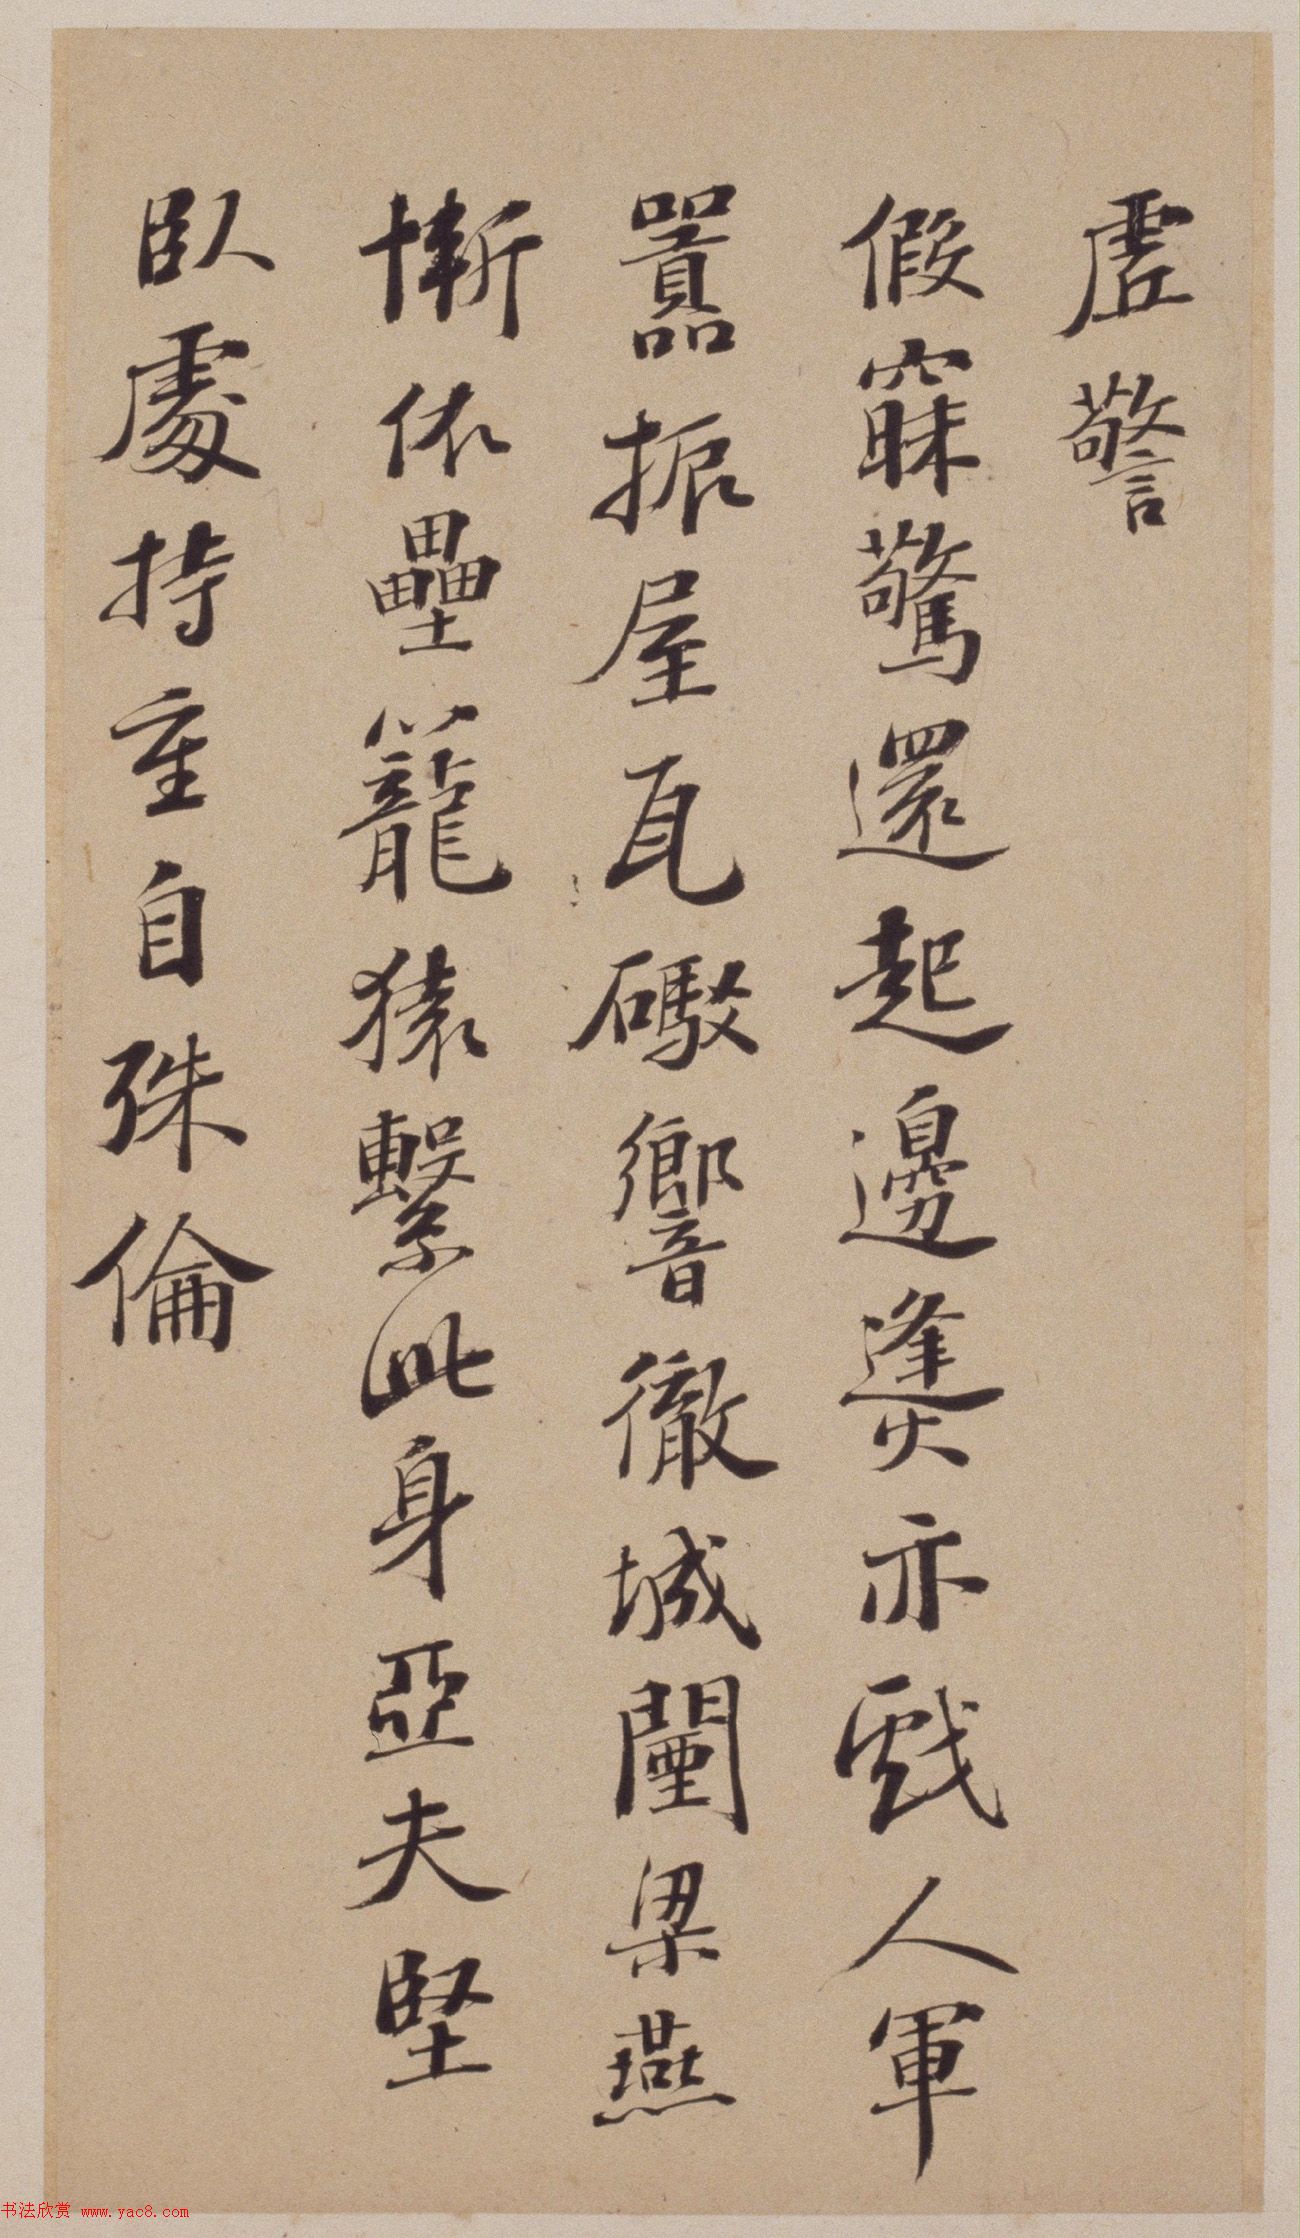 虛警
假寐驚還起邊㷭亦戲人軍
囂振屋瓦礮響徹城闉梁燕
慚依壘籠猿繫此身亞夫堅
臥處持重自殊倫
书法欣赏 www.yac8.com